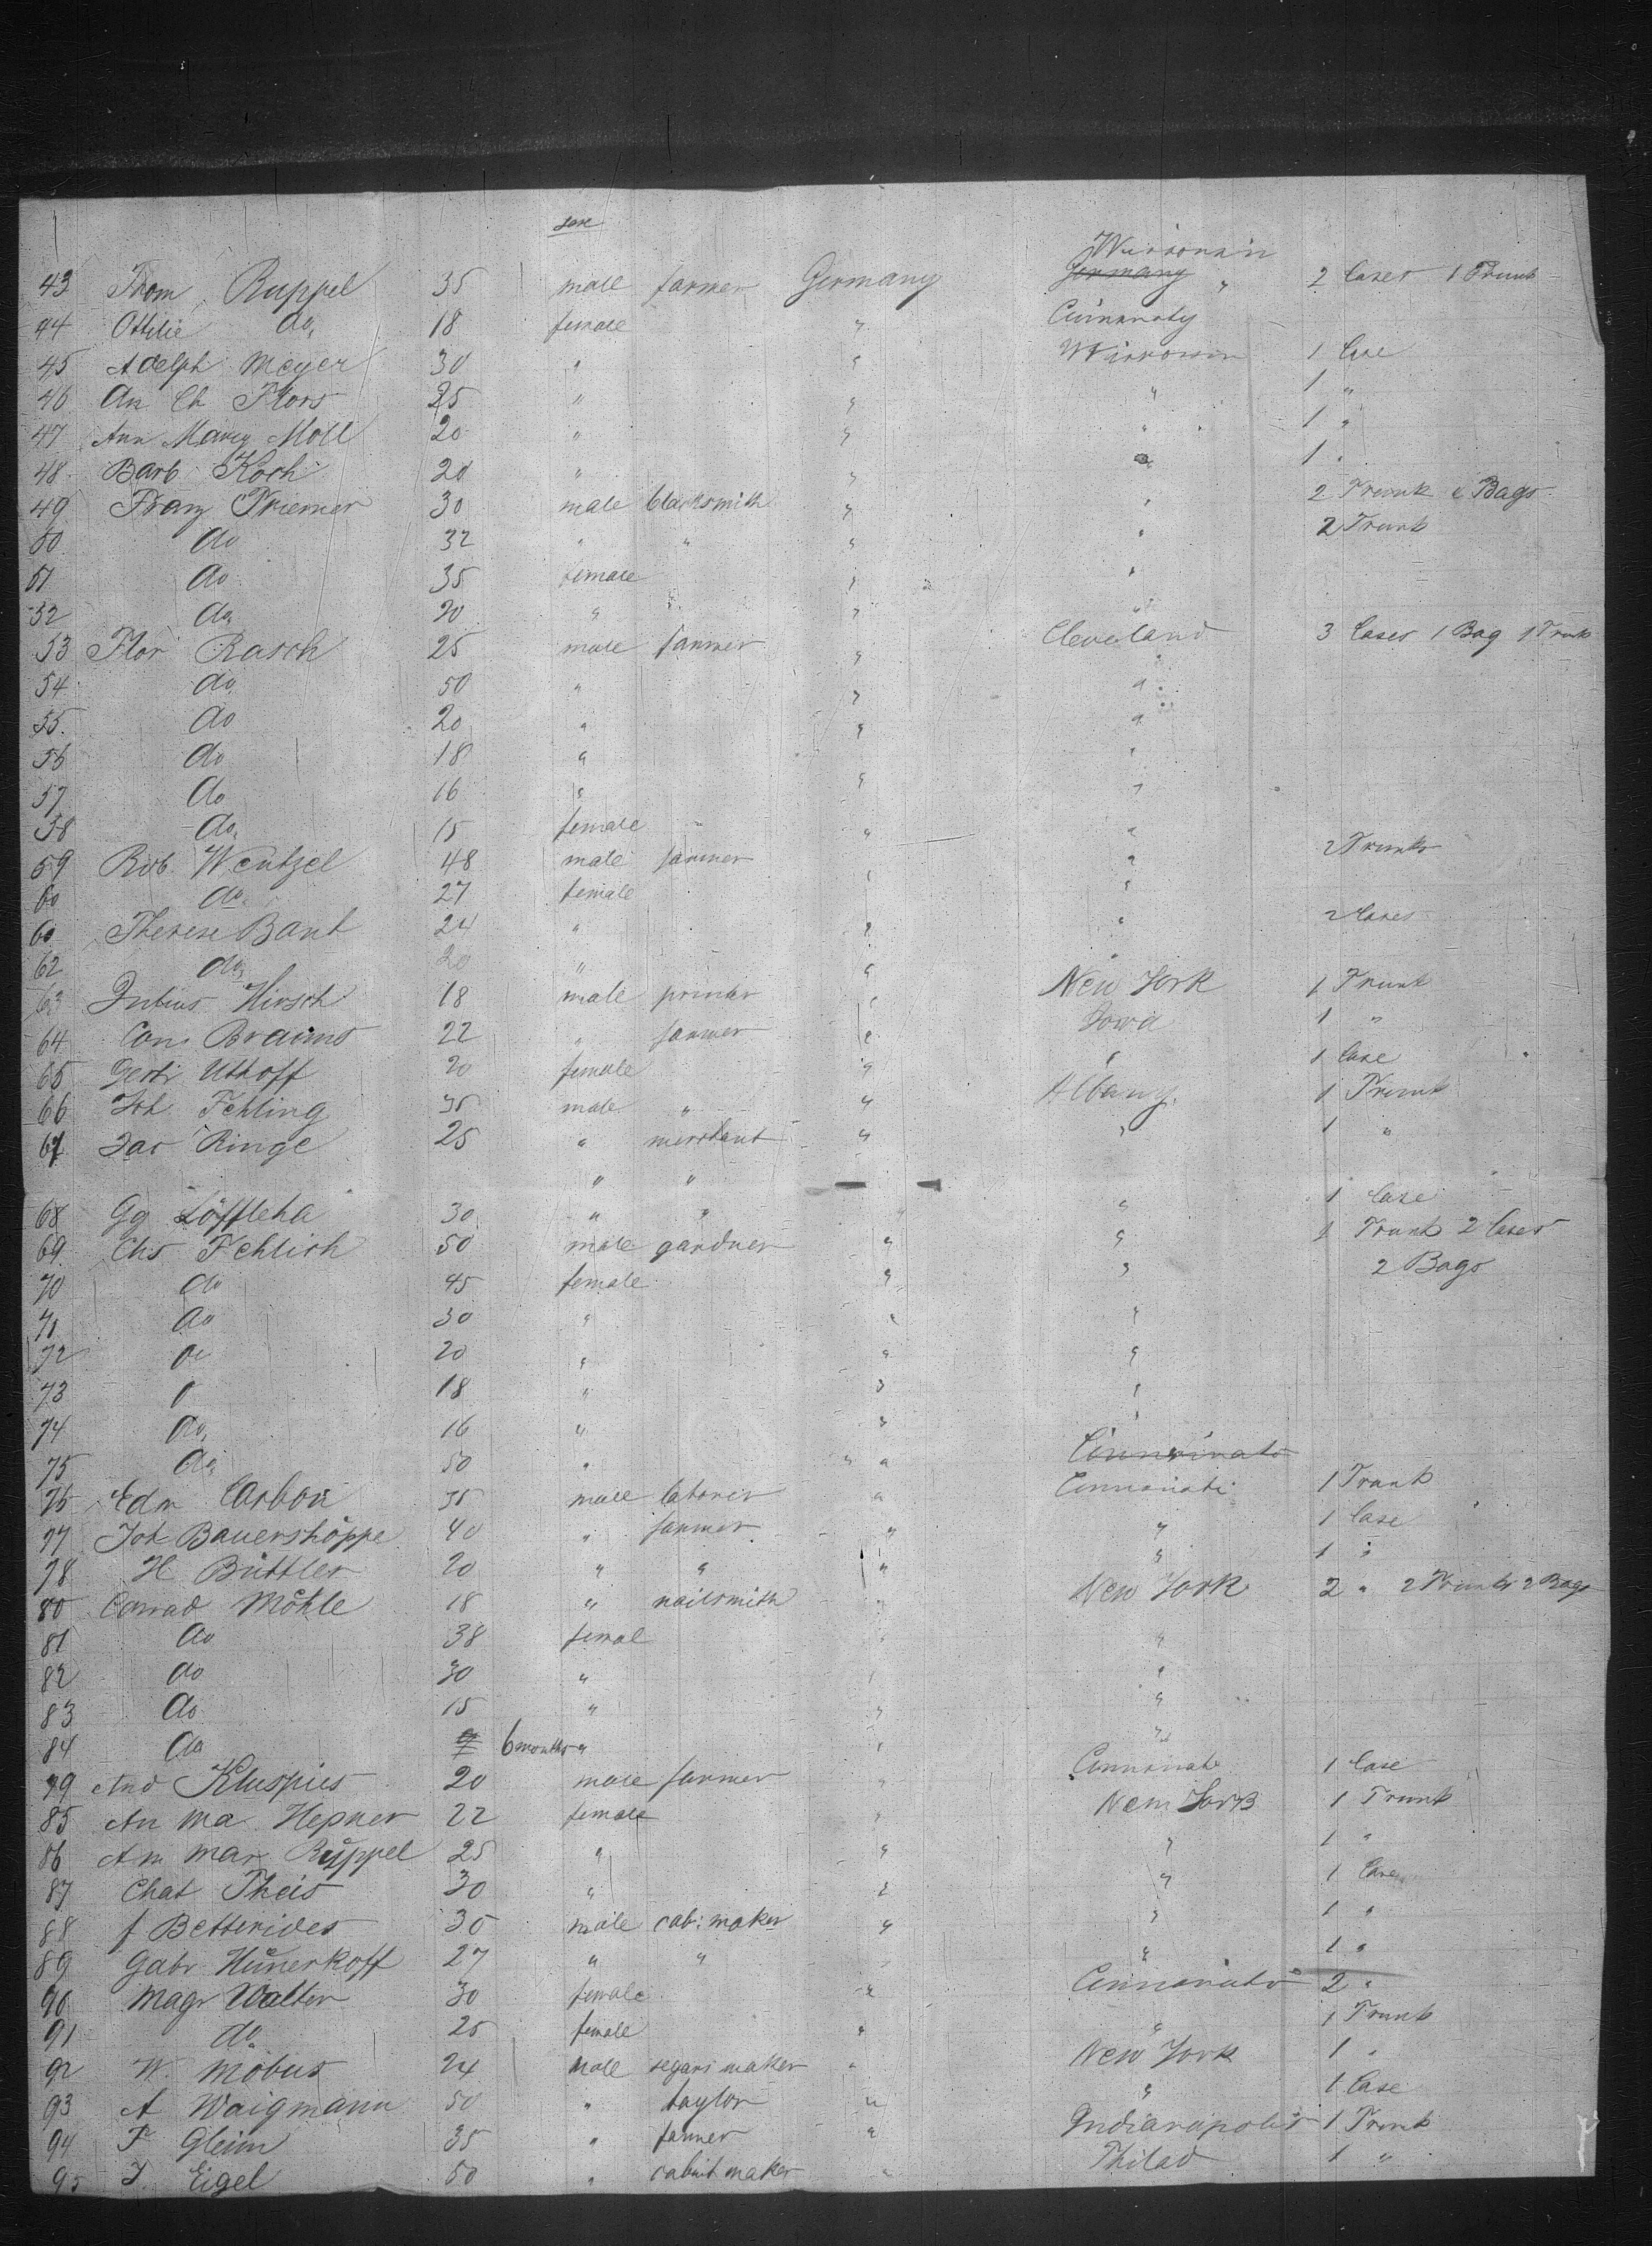 sex
Wirronsin
43 From Ruppel 35 male farmer Germany Germany " 2 Cases 1 Trunk
44 Ottilie do, 18 female " Cinnanaty
45 Adelph Meyer 30 " " Wirronsin 1 Case
46 An Ch Flors 25 " " " 1 "
47 Ann Marey Moll 20 " " " 1 "
48 Barb Koch 20 " " " 1 "
49 Franz Triemer 30 male blacksmith " " 2 Trunk 2 Bags
50 do 32 " " " " 2 Trunk
51 do 35 female " "
52 do 20 " " "
53 Flor Rasch 25 male farmer " Cleveland 3 Cases 1 Bag 1 Trunk
54 do 50 " " "
55 do 20 " " "
56 do 18 " "
57 do 16 " " "
58 do, 15 female " "
59 Rob. Wentzel 48 male farmer " " 2 Trunks
60 do. 27 female "
60 Therese Bant 24 " " " 2 Cases
62 do, 20 " " "
63 Julius Hirsch 18 male printer " New York 1 Trunk
64 Con Brauns 22 " farmer " Iowa 1 "
65 Gertr Uthoff 20 female " " 1 Case
66 Joh Fehling 35 male " " Albany. 1 Trunk
67 Jas Ringe 25 " merchant " " 1 "
" "
68 Gg Löffleha 30 " " " " 1 Case
69 Chs Fehlich 50 male gardner " " 1 Trunk 2 Cases
70 do 45 female " " 2 Bags
71 do 30 " " "
72 do 20 " " "
73 18 " " "
74 do, 16 " " "
75 do, 50 " " " Cinnrinato
76 Edw Carbon 35 male laborer " Cinnonati 1 Trunk
77 Joh Bauershöppe 40 " farmer " " 1 Case
78 H Büttler 20 " " " " 1 "
80 Conrad Möhle 18 " nailsmith " New York 2 " 2 Trunks 2 Bags
81 do 38 femal " "
82 do 30 " " "
83 do 15 " " "
84 do 6 months " " "
79 And Kluspies 20 male farmer " Cinnonati 1 Case
85 An Ma Hepner 22 female " New York 1 Trunk
86 Am Mar Rüppel 25 " " " 1 "
87 Chat Theis 30 " " " 1 Case
88 f Betterides 30 male cab: maker " " 1 "
89 Gabr Hünerkoff 27 " " " " 1 "
90 Magr Walter 30 female " Cinnonato 2 "
91 do. 25 female " " 1 Trunk
92 W. Möbus 24 male segars maker " New York 1 "
93 A Waigmann 50 " taylor " " 1 Case
94 F Gleim 35 " farmer " Indianapolis 1 Trunk
95 J. Eigel 50 " cabint maker " Philad 1 "